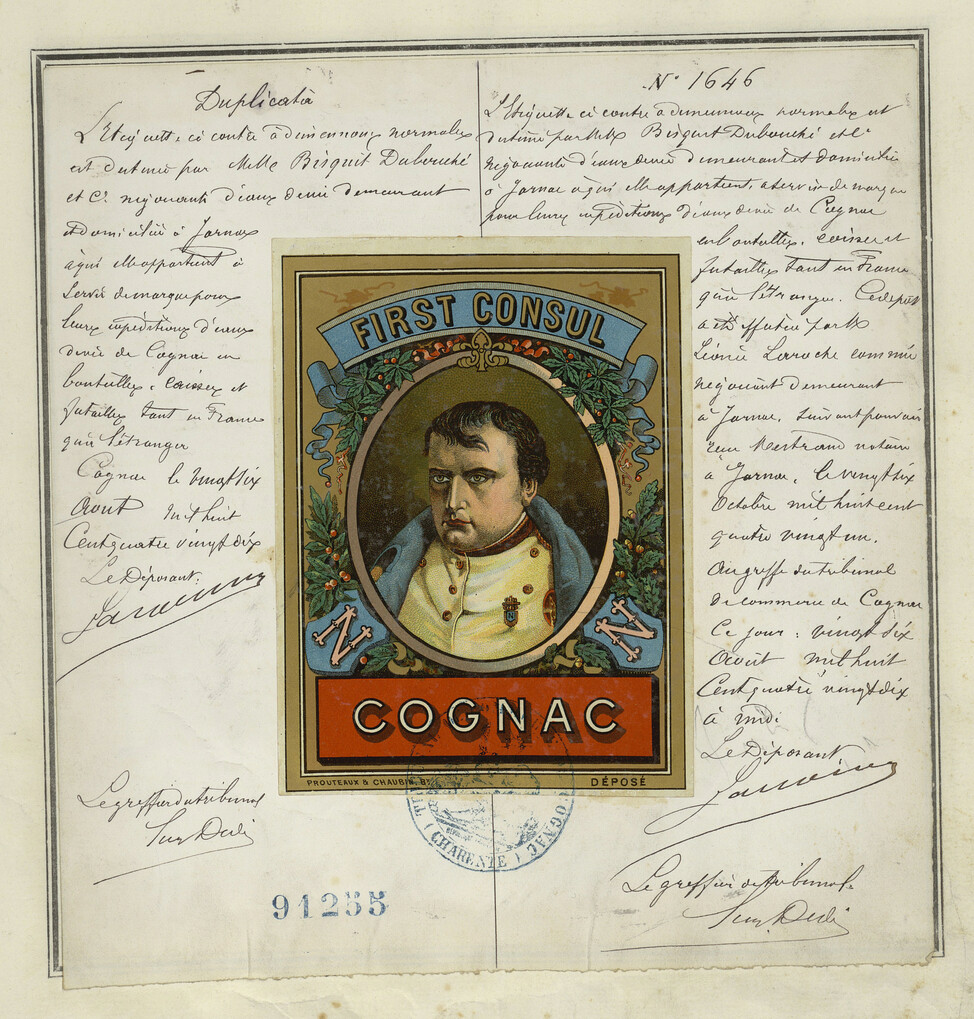 Duplicata
L'Etiquette ci contre à dimensions normales
est destinée par MM. Bisquit Dubouché
et Cie négociants d'eaux de vie demeurant
et domiciliés à Jarnac
à qui elle appartient à
servir de marque pour
leurs expéditions d'eaux
de vie de Cognac en
bouteilles, caisses et
futailles tant en France
qu'à l'étranger
Cognac le vingt six
Août mil huit
Cent quatre vingt dix
Le Déposant:
Le greffier du tribunal
N° 1646
L'Etiquette ci contre à dimensions normales est
destinée par MM. Bisquit Dubouché et Cie
négociants d'eaux de vie demeurant et domiciliés
à Jarnac à qui elle appartient, à servir de marque
pour leurs expéditions d'eaux de vie de Cognac
en bouteilles, caisses et
futailles tant en France
qu'à l'étranger. Ce dépôt
a été effectué par M.
Léonce Laroche commis
négociant demeurant
à Jarnac, suivant pouvoir
reçu Mestreau notaire
à Jarnac, le vingt six
Octobre mil huit cent
quatre vingt un.
Au greffe du tribunal
de commerce de Cognac
Ce jour: vingt six
Août mil huit
Cent quatre vingt dix
à midi
Le Déposant
Le greffier du tribunal
FIRST CONSUL
N N
N
COGNAC
PROUTEAUX & CHAUBIN
DÉPOSÉ
COGNAC (CHARENTE)
91255